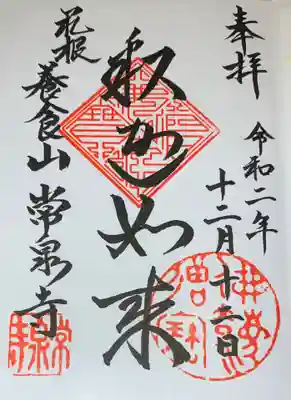 奉拝
令和二年
十二月十三日
釈迦如来
養食山
常泉寺